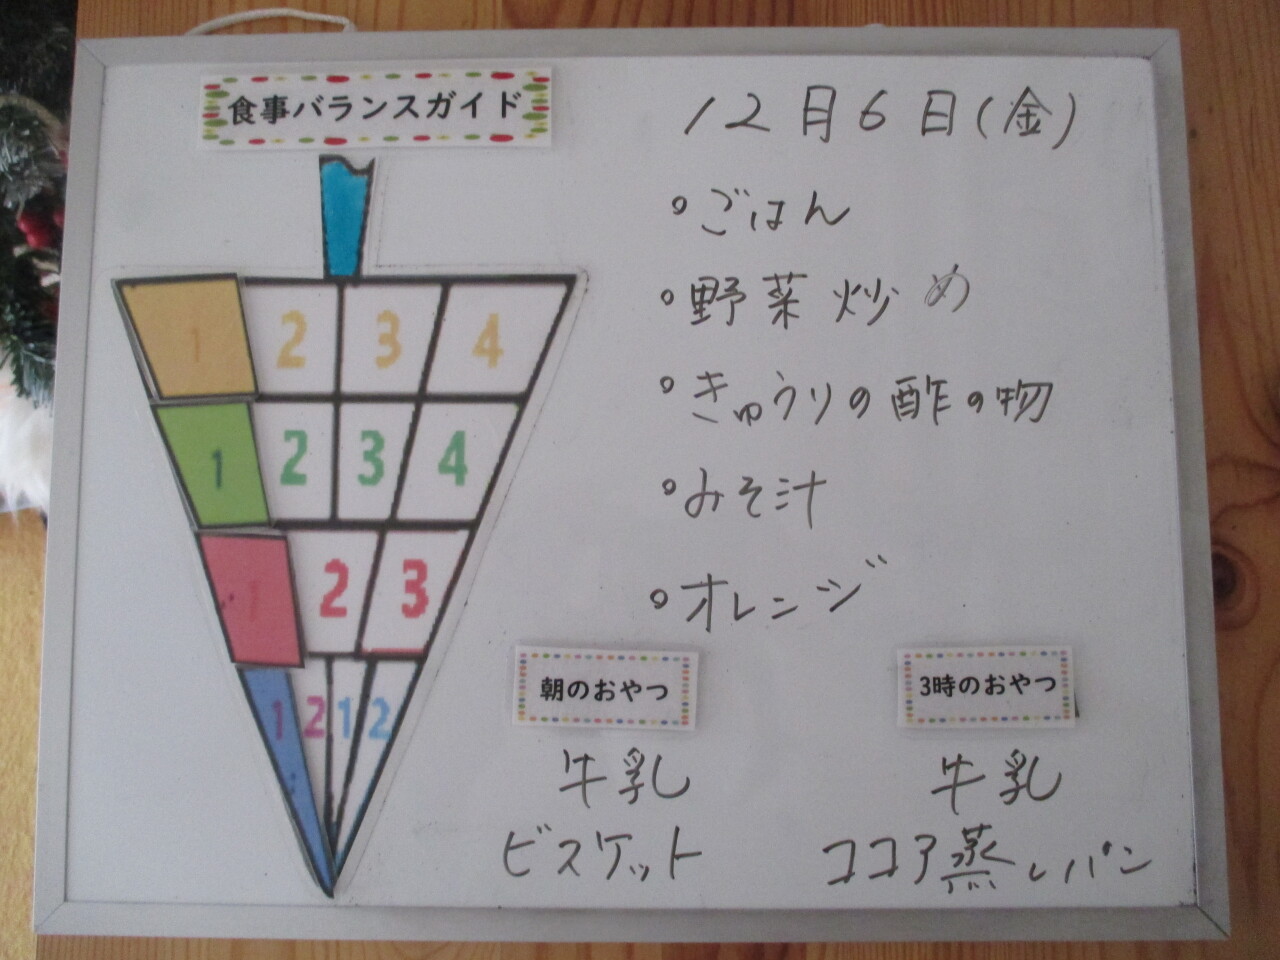 食事バランスガイド
1 2 3 4
1 2 3 4
1 2 3
1 2 1 2
12月6日(金)
・ごはん
・野菜炒め
・きゅうりの酢の物
・みそ汁
・オレンジ
朝のおやつ
牛乳
ビスケット
3時のおやつ
牛乳
ココア蒸しパン